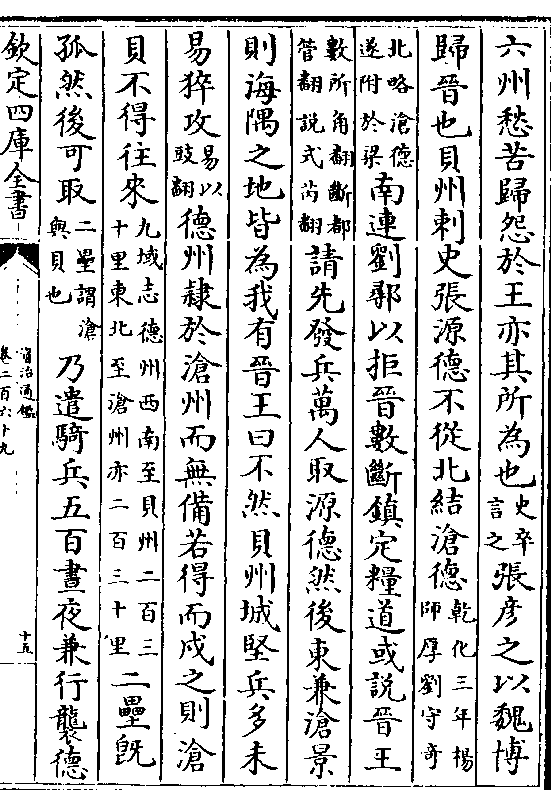 六州愁苦歸怨於王亦其所為也史卒言之張彦之以魏博
歸晉也貝州刺史張源德不從北結滄德乾化三年楊師厚劉守奇
北略滄德遂附於梁南連劉鄩以拒晉數斷鎮定糧道或説晉王
數所角翻斷都管翻說式芮翻請先發兵萬人取源德然後東兼滄景
則海隅之地皆為我有晉王曰不然貝州城堅兵多未
易猝攻易以豉翻德州隷於滄州而無備若得而戍之則滄
貝不得往來九域志德州西南至貝州二百三十里東北至滄州亦二百三十里二壘旣
孤然後可取二壘謂滄與貝也乃遣騎兵五百晝夜兼行襲德
欽定四庫全書
資治通鑑
卷二百六十九
十五